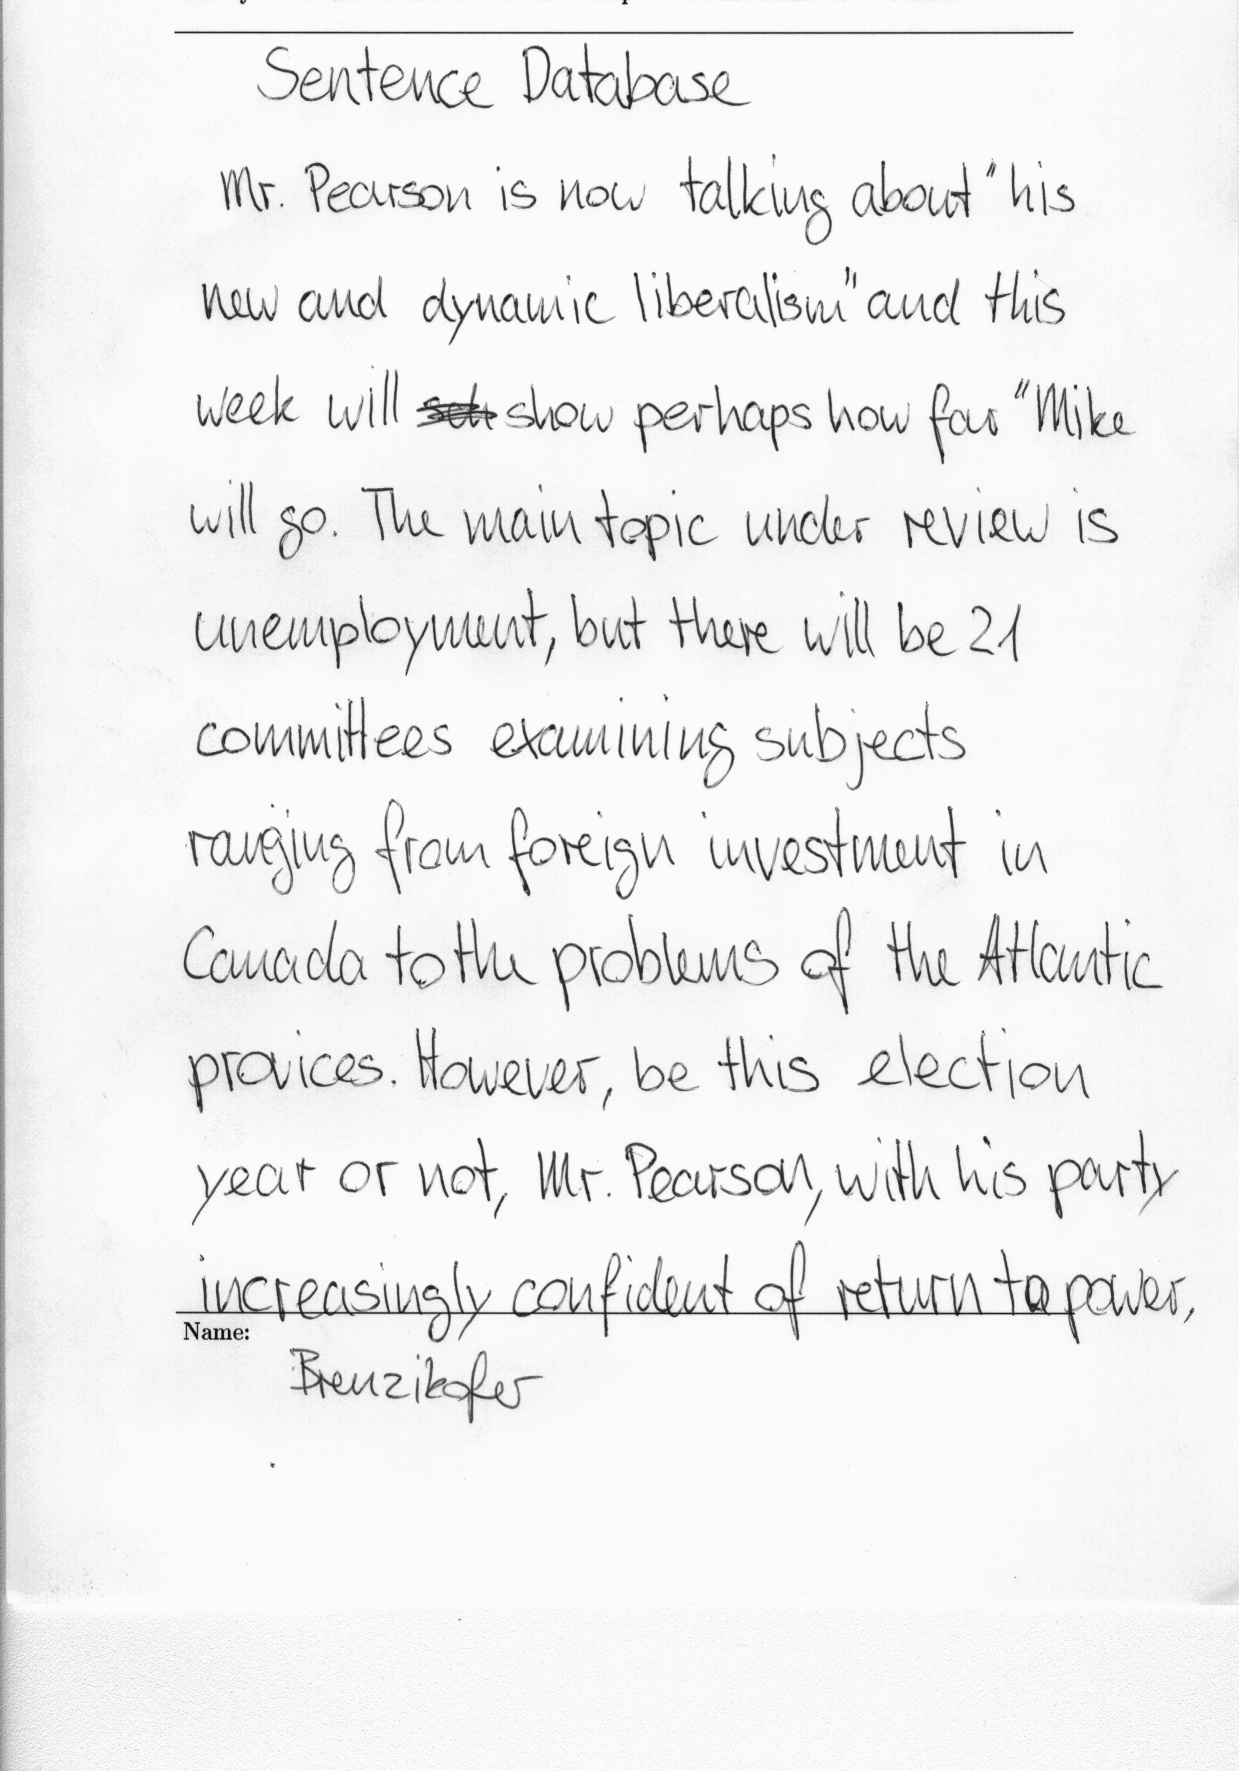 Sentence Database
Mr. Pearson is now talking about "his
new and dynamic liberalism" and this
week will show perhaps how far "Mike
will go. The main topic under review is
unemployment, but there will be 21
committees examining subjects
ranging from foreign investment in
Canada to the problems of the Atlantic
provices. However, be this election
year or not, Mr. Pearson, with his party
increasingly confident of return to power,
Name:
Brenzikofer